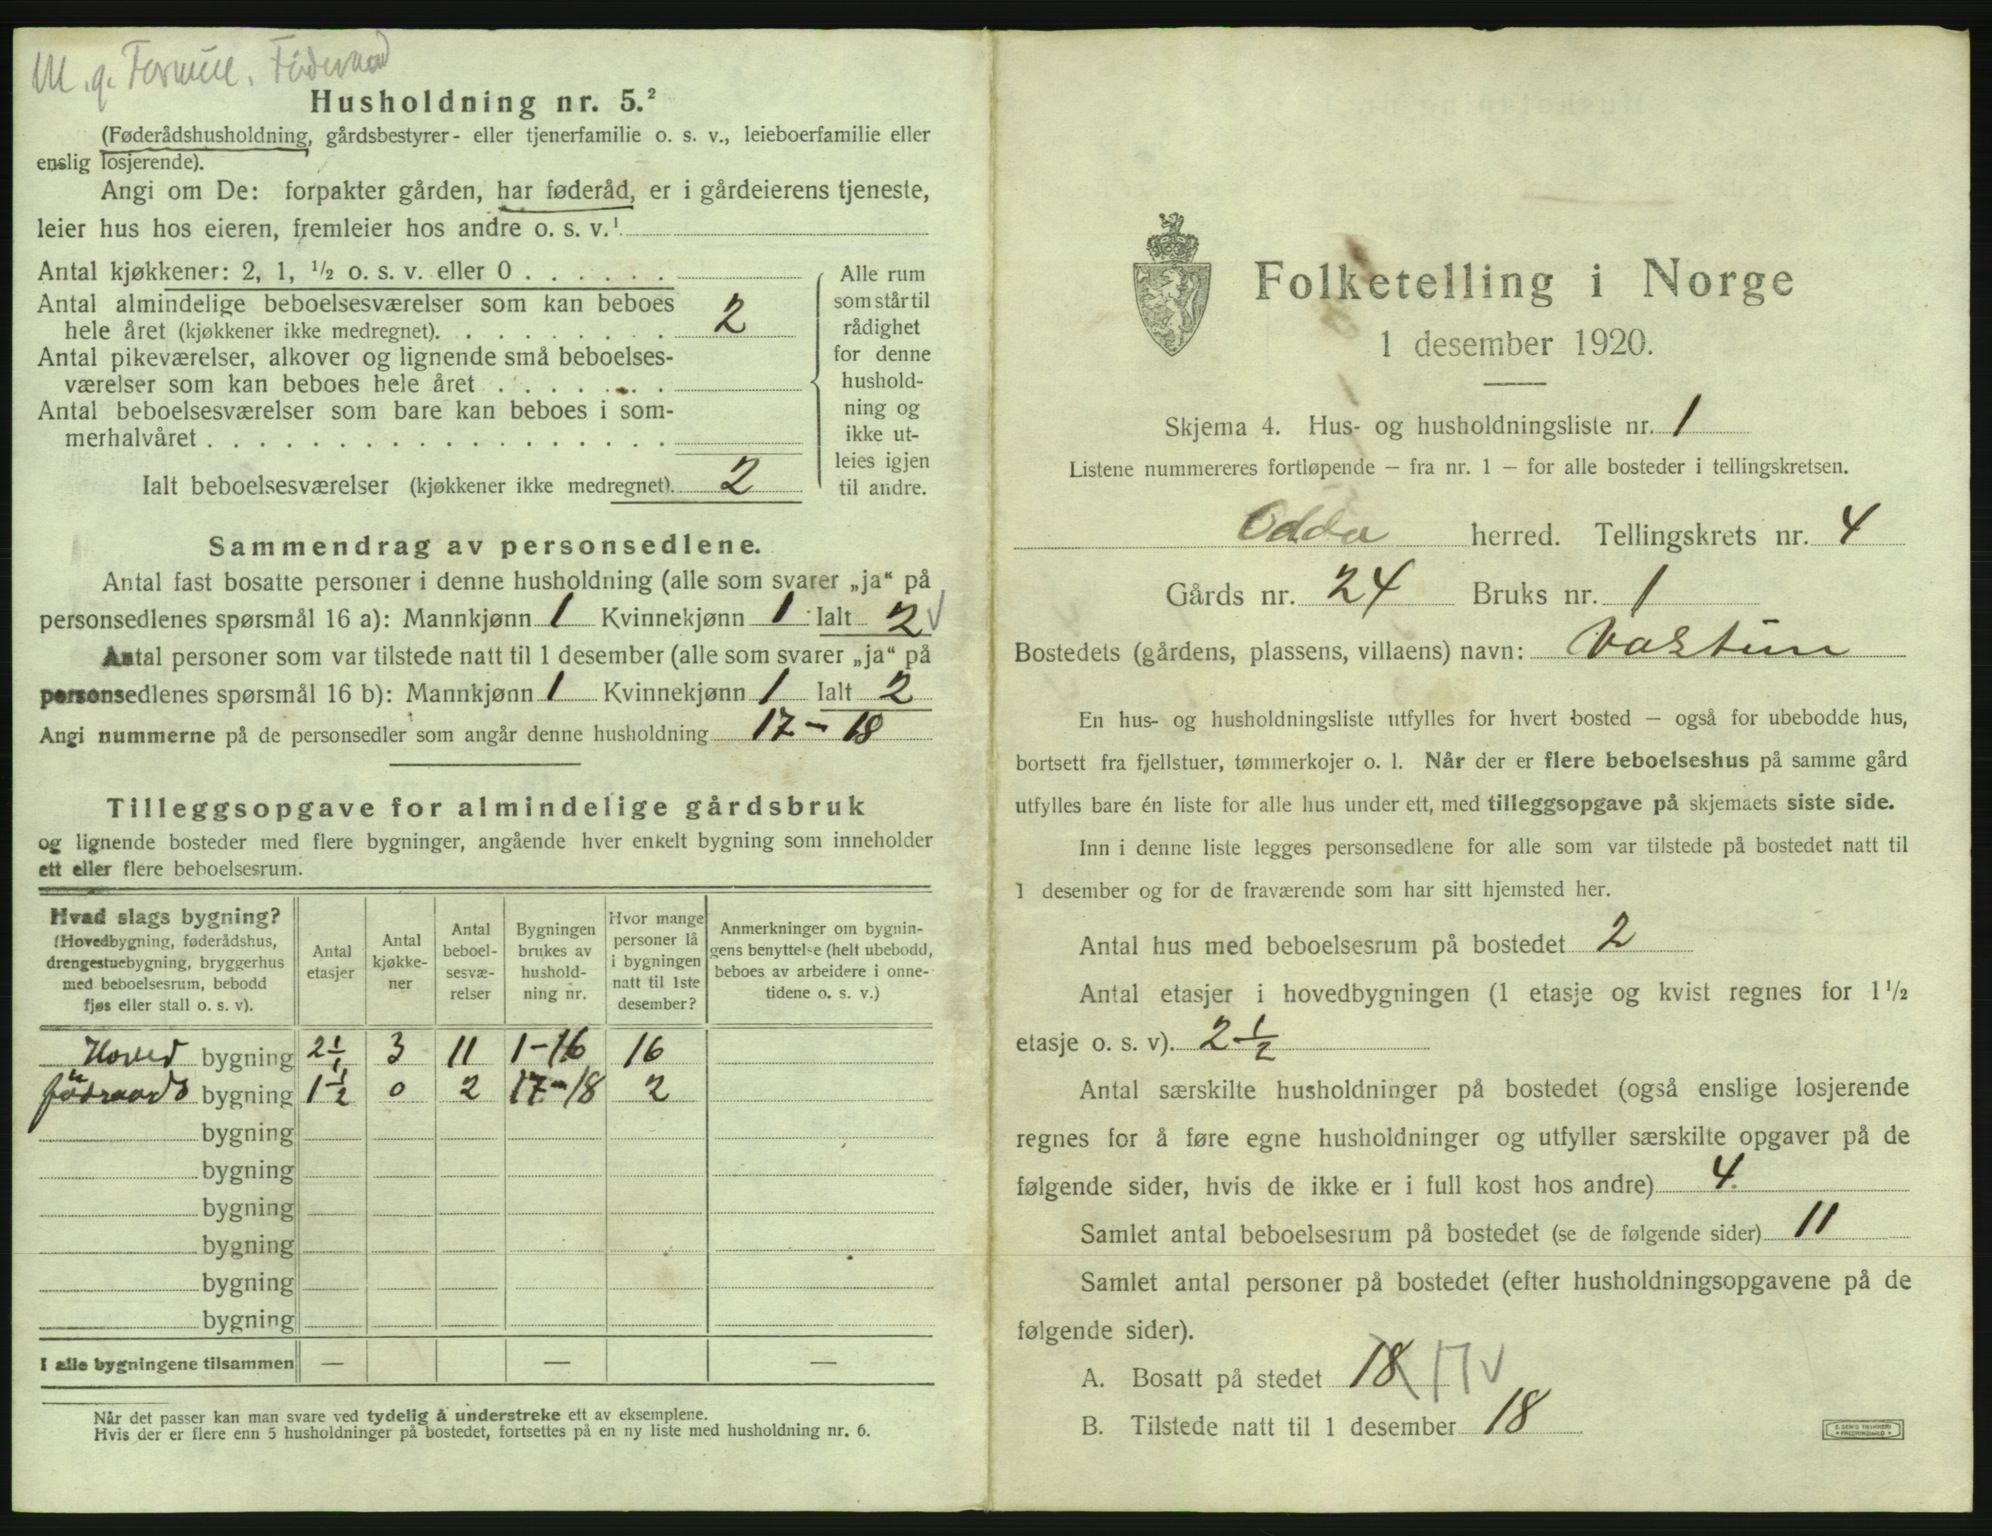 M. g. Føderaad
Husholdning nr. 5.²
(Føderådshusholdning, gårdsbestyrer- eller tjenerfamilie o. s. v., leieboerfamilie eller
enslig losjerende).
Angi om De: forpakter gården, har føderåd, er i gårdeierens tjeneste,
leier hus hos eieren, fremleier hos andre o. s. v.¹
Antal kjøkkener: 2, 1, ½ o. s. v. eller 0
Antal almindelige beboelsesværelser som kan beboes
hele året (kjøkkener ikke medregnet). 2
Antal pikeværelser, alkover og lignende små beboelses-
værelser som kan beboes hele året
Antal beboelsesværelser som bare kan beboes i som-
merhalvåret
Ialt beboelsesværelser (kjøkkener ikke medregnet). 2
Alle rum
som står til
rådighet
for denne
hushold-
ning og
ikke ut-
leies igjen
til andre.
Sammendrag av personsedlene.
Antal fast bosatte personer i denne husholdning (alle som svarer „ja“ på
personsedlenes spørsmål 16 a): Mannkjønn 1 Kvinnekjønn 1 Ialt 2 √
Antal personer som var tilstede natt til 1 desember (alle som svarer „ja“ på
personsedlenes spørsmål 16 b): Mannkjønn 1 Kvinnekjønn 1 Ialt 2
Angi nummerne på de personsedler som angår denne husholdning 17 – 18
Tilleggsopgave for almindelige gårdsbruk
og lignende bosteder med flere bygninger, angående hver enkelt bygning som inneholder
ett eller flere beboelsesrum.
Hvad slags bygning?
(Hovedbygning, føderådshus,
drengestuebygning, bryggerhus
med beboelsesrum, bebodd
fjøs eller stall o. s. v).
Antal
etasjer
Antal
kjøkke-
ner
Antal
beboel-
sesvæ-
relser
Bygningen
brukes av
hushold-
ning nr.
Hvor mange
personer lå
i bygningen
natt til 1ste
desember?
Anmerkninger om bygnin-
gens benyttelse (helt ubebodd,
beboes av arbeidere i onne-
tidene o. s. v.)
Hoved bygning 2 1/1 3 11 1–16 16
föderaads bygning 1 1/2 0 2 17–18 2
bygning
bygning
bygning
bygning
bygning
bygning
I alle bygningene tilsammen — — —
Når det passer kan man svare ved tydelig å understreke ett av eksemplene.
Hvis der er flere enn 5 husholdninger på bostedet, fortsettes på en ny liste med husholdning nr. 6.
Folketelling i Norge
1 desember 1920.
Skjema 4. Hus- og husholdningsliste nr. 1
Listene nummereres fortløpende – fra nr. 1 – for alle bosteder i tellingskretsen.
Odda herred. Tellingskrets nr. 4
Gårds nr. 24 Bruks nr. 1
Bostedets (gårdens, plassens, villaens) navn: Vastun
En hus- og husholdningsliste utfylles for hvert bosted – også for ubebodde hus,
bortsett fra fjellstuer, tømmerkojer o. l. Når der er flere beboelseshus på samme gård
utfylles bare én liste for alle hus under ett, med tilleggsopgave på skjemaets siste side.
Inn i denne liste legges personsedlene for alle som var tilstede på bostedet natt til
1 desember og for de fraværende som har sitt hjemsted her.
Antal hus med beboelsesrum på bostedet 2
Antal etasjer i hovedbygningen (1 etasje og kvist regnes for 1½
etasje o. s. v). 2 ½
Antal særskilte husholdninger på bostedet (også enslige losjerende
regnes for å føre egne husholdninger og utfyller særskilte opgaver på de
følgende sider, hvis de ikke er i full kost hos andre) 4.
Samlet antal beboelsesrum på bostedet (se de følgende sider) 11
Samlet antal personer på bostedet (efter husholdningsopgavene på de
følgende sider).
A. Bosatt på stedet 18 17 √
B. Tilstede natt til 1 desember 18